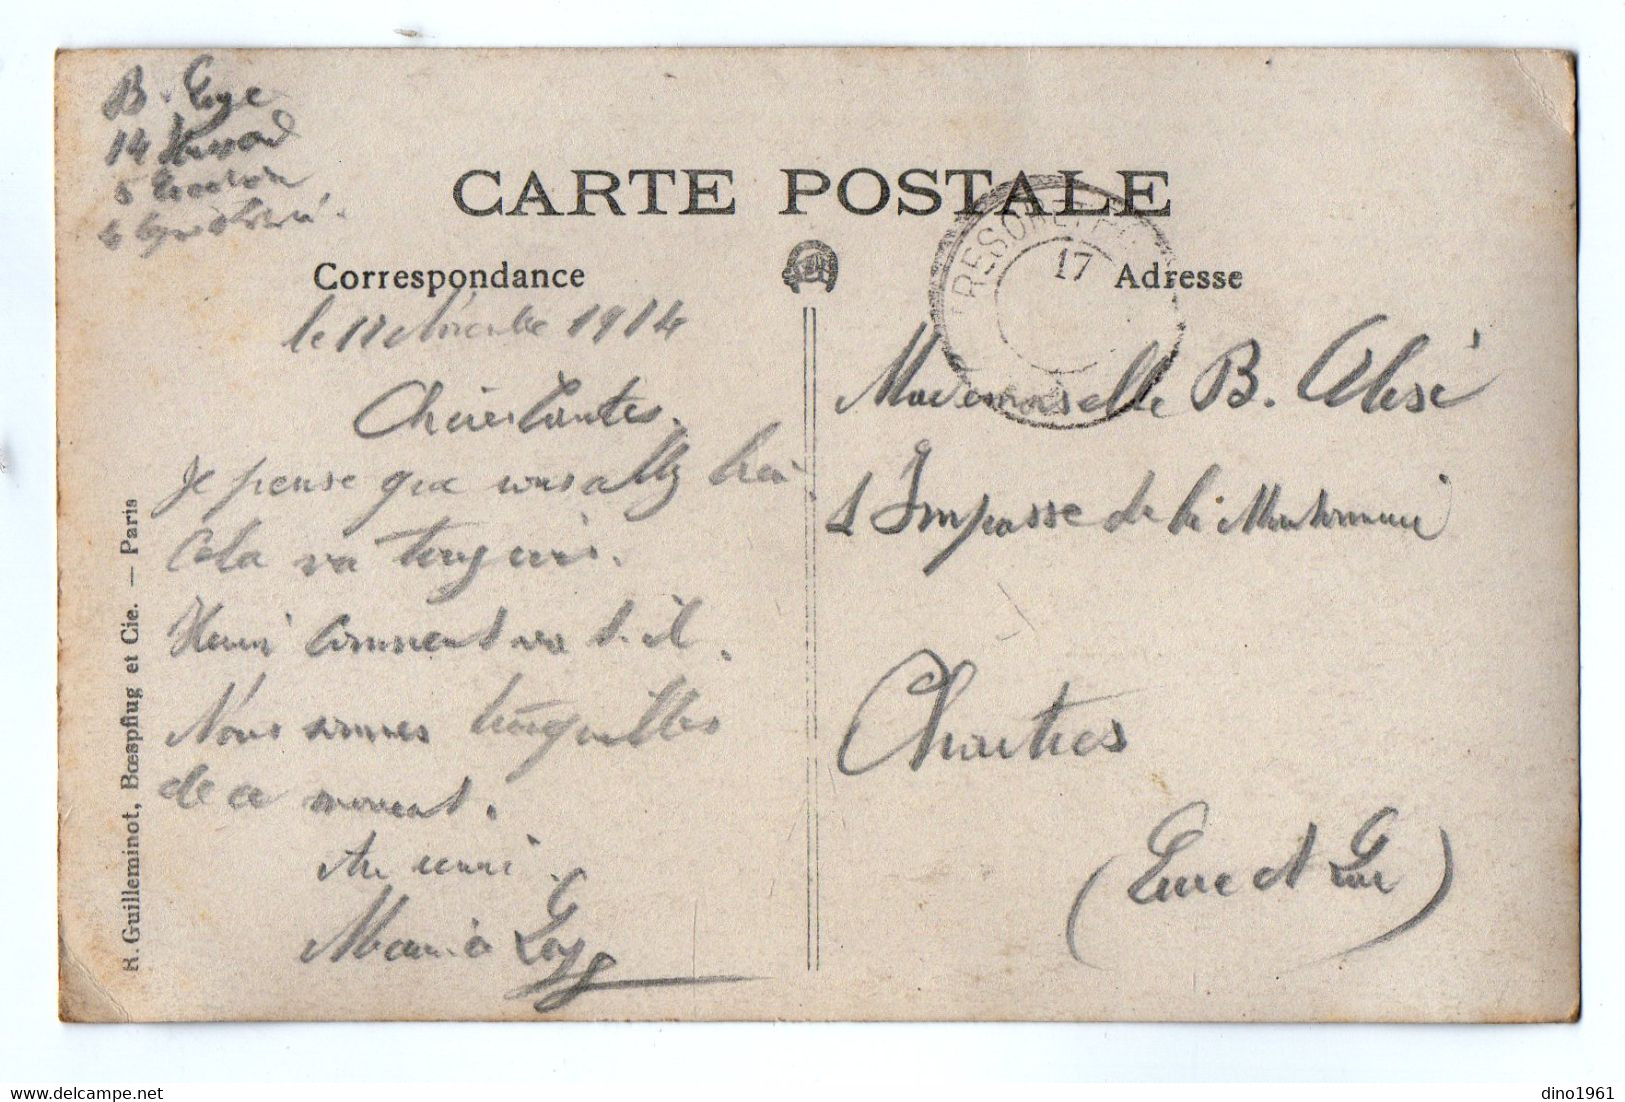 B. Loye
14 Hussard
5 Escadron
CARTE POSTALE
TRESOR ET
17
Correspondance
Adresse
le 11 Novembre 1914
Chères Tantes.
Je pense que vous allez bien.
Cela va toujours.
Henri comment va t-il.
Nous sommes tranquilles
de ce moment.
Au revoir.
Loye
Mademoiselle B. Alisé
1 Impasse de la
Chartres
(Eure et Loir)
R. Guilleminot, Bœspflug et Cie. — Paris
dino1961